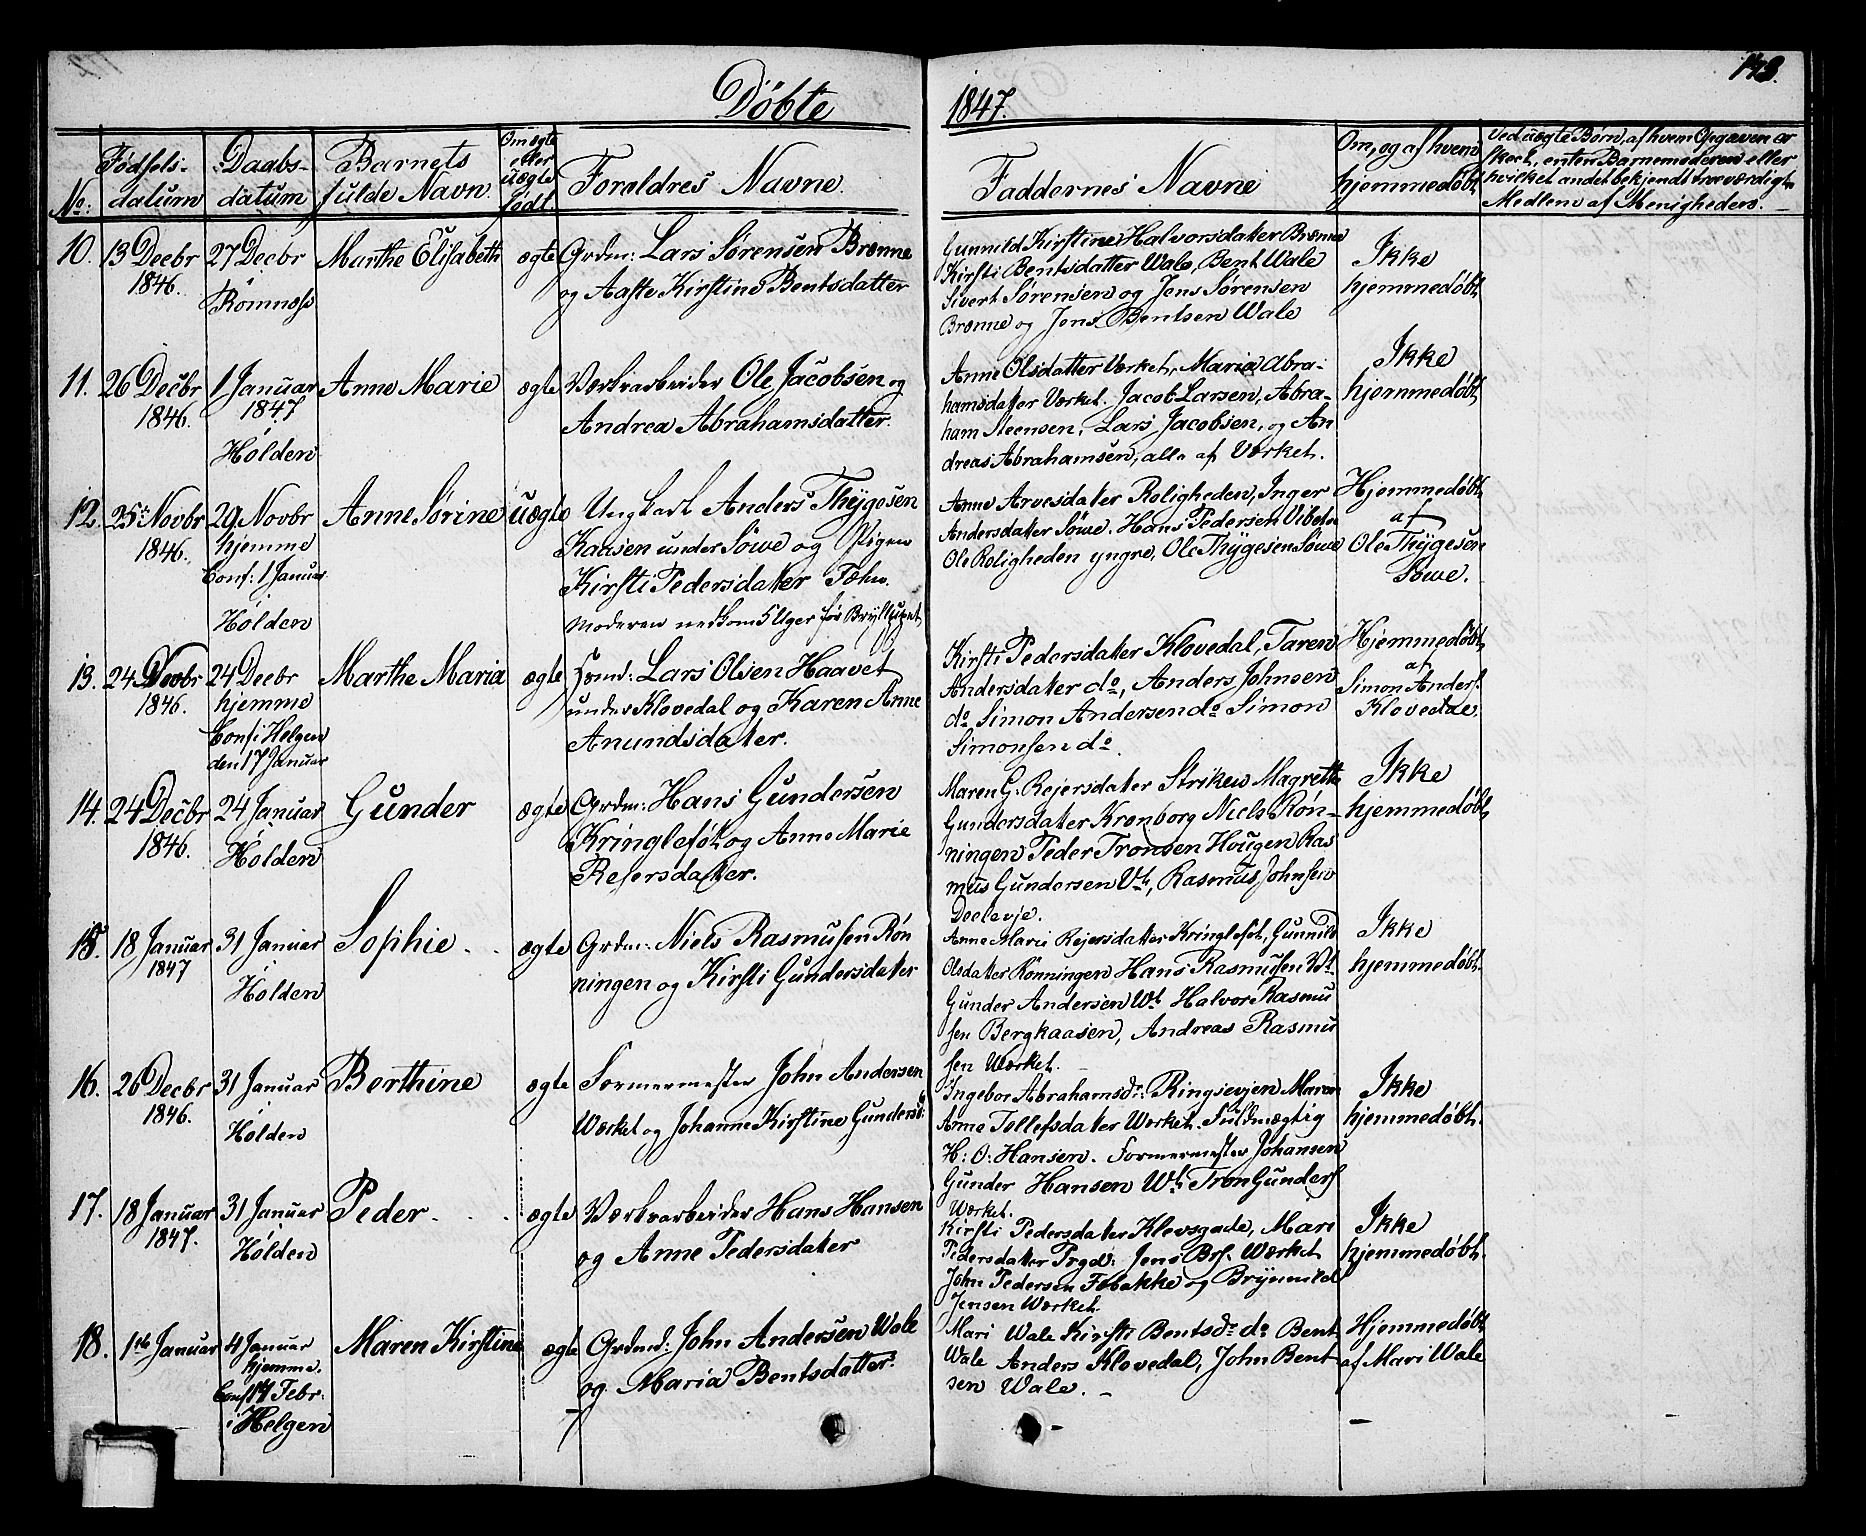 Døbte
1847.
143.
No:
Fødsels-
datum
Daabs-
datum
Barnets
fulde Navn.
Om ægte
eller
uægte
født.
Forældres Navne.
Faddernes Navne
Om, og af hvem
hjemmedøbt
Ved uægte Børn, af hvem Opgaven er
skeet, enten Barnemoderen eller
hvilket andet bekjendt troeværdigt
Medlem af Menigheden.
10.
13 Decbr
1846.
27 Decbr
Rømnæss
Marthe Elisabeth
ægte
Grdm: Lars Sørensen Brenne
og Aaste Kirstine Bentsdatter
Gunnild Kirstine Halvorsdatter Brenne
Kirsti Bentsdatter Wale, Bent Wale
Sivert Sørensen og Jens Sørensen
Brenne og Jens Bentsen Wale
Ikke
hjemmedøbt
11.
26 Decbr
1846.
1 Januar
1847
Holden
Anne Marie
ægte
Værksarbeider Ole Jacobsen og
Andrea Abrahamsdatter.
Anne Olsdatter Værket, Maria Abra-
hamsdatter Værket. Jacob Larsen, Abra-
ham Steensen, Lars Jacobsen, og An
dreas Abrahamsen, alle af Værket.
Ikke
hjemmedøbt
12.
25 Novbr
1846.
29 Novbr
hjemme
Conf: 1 Januar
Holden
Anne Sørine
uægte
Ungkarl Anders Thygesen
Kaasen under Søwe og Pigen
Kirsti Pedersdatter Fæhn.
Moderen nedkom 5 Uger før Brylluppet
Anne Arvesdatter Roligheden, Inger
Andersdatter Søwe. Hans Pedersen Vibeto
Ole Roligheden yngre, Ole Thygesen Søwe
Hjemmedøbt
af
Ole Thygesen
Søwe.
13.
24 Novbr
1846.
24 Decbr
hjemme
Conf i Helgen
den 17 Januar
Marthe Maria
ægte
Hmd: Lars Olsen Haavet
under Klovedal og Karen Anne
Anundsdatter.
Kirsti Pedersdatter Klovedal, Taren
Andersdatter do, Anders Johnsen
do Simon Andersen do Simon
Simonsen do.
Hjemmedøbt
af
Simon Anders.
Klovedal.
14.
24 Decbr
1846.
24 Januar
Holden
Gunder
ægte
Grdm: Hans Gundersen
Kringlefot og Anne Marie
Rejersdatter.
Maren G. Rejersdatter Striken Magrethe
Gundersdatter Kronborg Niels Røn-
ningen Peder Tronsen Hougen Ras
mus Gundersen Vt, Rasmus Johnsen
Doelevje.
Ikke
hjemmedøbt
15.
18 Januar
1847
31 Januar
Holden
Sophie
ægte
Grdm: Niels Rasmusen Røn
ningen og Kirsti Gundersdatter
Anne Marie Rejersdatter Kringlefot, Gunnild
Olsdatter Rønningen Hans Rasmusen Wt
Gunder Andersen Wt Halvor Rasmu
sen Bergkaasen, Andreas Rasmu
sen Værket.
Ikke
hjemmedøbt
16.
26 Decbr
1846.
31 Januar
Holden
Berthine
ægte
Formermester John Andersen
Værket og Johanne Kirstine Gundersd:
Ingebor Abrahamsdr: Ringsevjen Maren
Anne Tellefsdatter Værket. Fuldmægtig
H: O: Hansen. Formermester Johansen
Gunder Hansen Wt Tron Gunders
Værket.
Ikke
hjemmedøbt.
17.
18 Januar
1847.
31 Januar
Holden
Peder
ægte
Værksarbeider Hans Hansen
og Anne Pedersdatter
Kirsti Pedersdatter Klevsgade, Mari
Pedersdatter Prgd: Jens Brs. Værket
John Pedersen Febakke og Brynnild
Jensen Værket.
Ikke
hjemmedøbt.
18.
1ste Januar
4 Januar
hjemme.
Conf 14 Febr.
i Helgen
Maren Kirstine
ægte
Grdmd: John Andersen Wale
og Maria Bentsdatter.
Mari Wale Kirsti Bentsdr do Bent
Wale Anders Klovedal, John Bent
sen Wale.
Hjemmedøbt
af Mari Wale